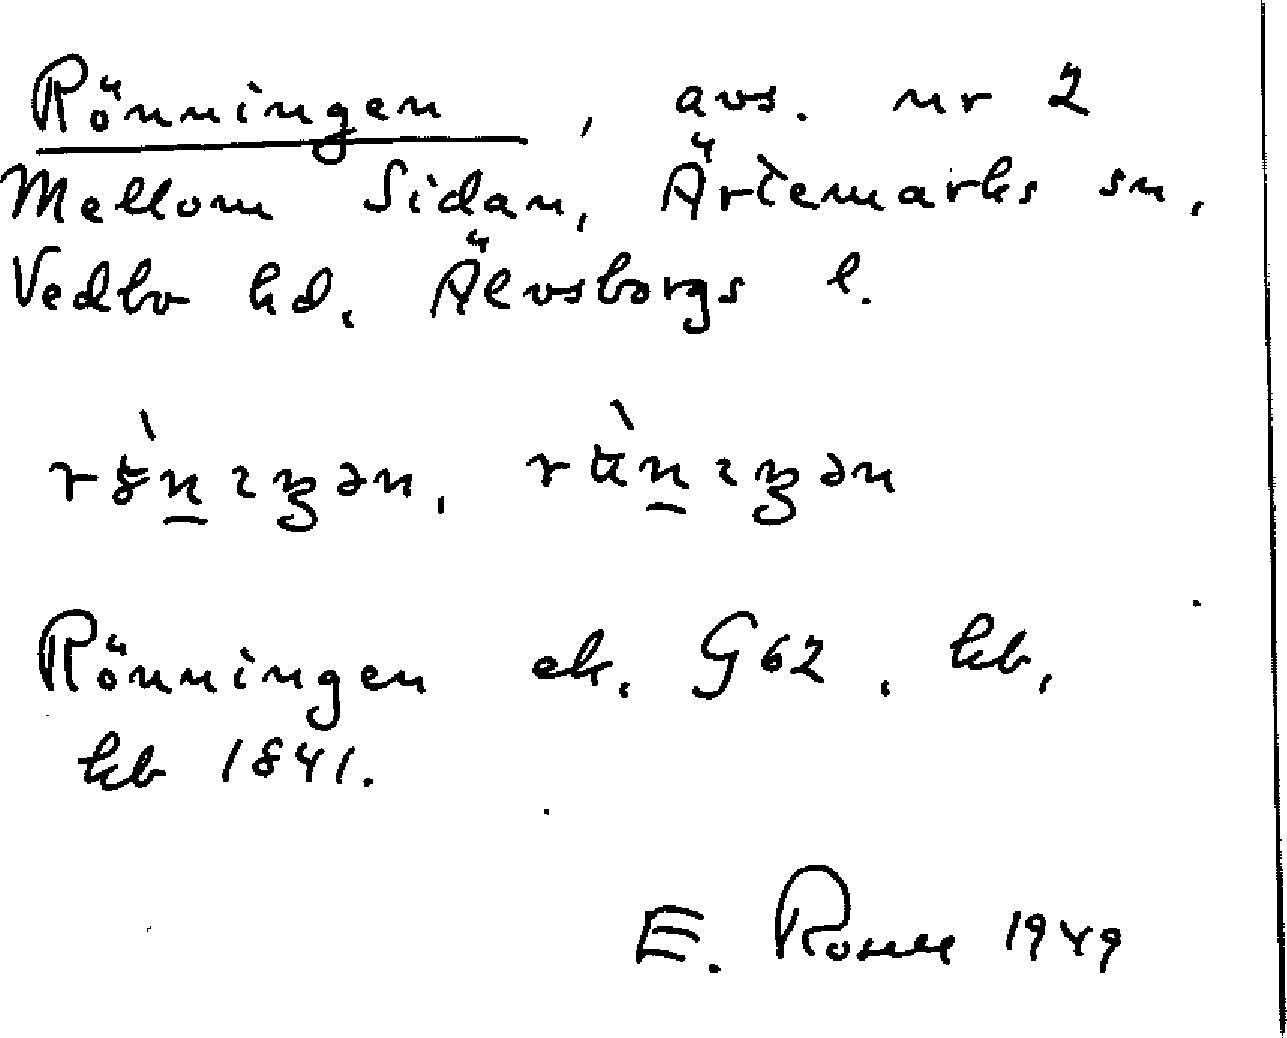 Rönningen, avs. nr 2
Mellom Sidan, Ärtemarks sn,
Vedbo hd, Älvsborgs l.
Rönningen ek. G62, kb,
kb 1841.
E. Rosell 1949